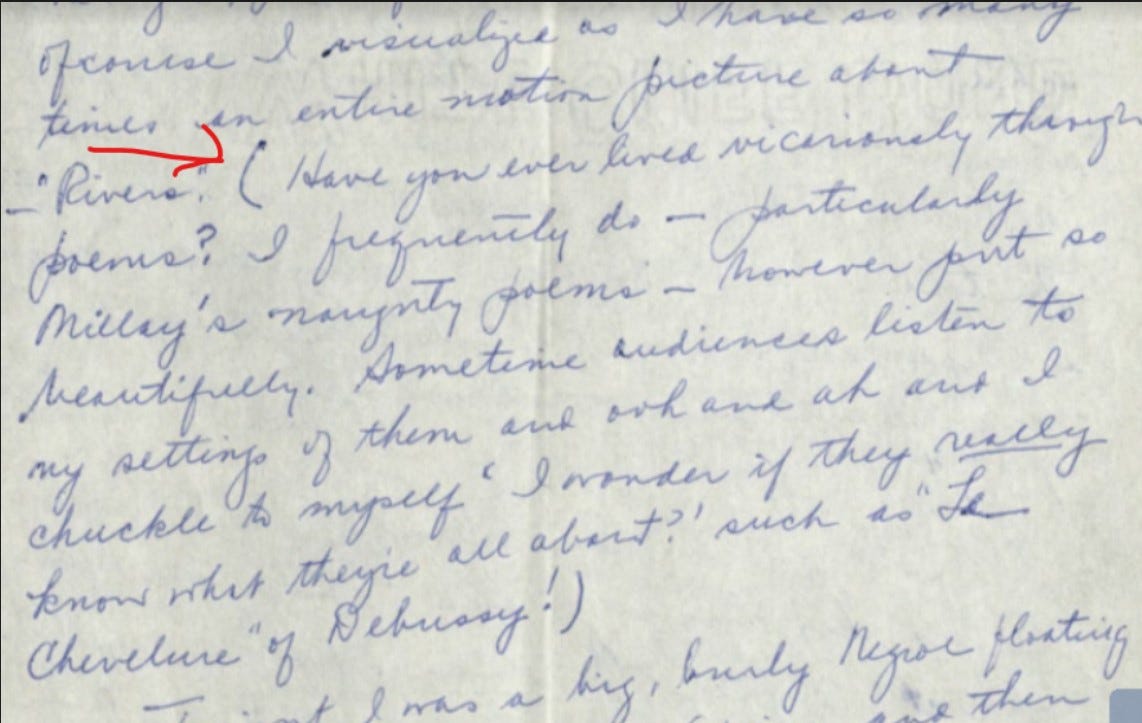 of course I visualized as I have so many
times an entire motion picture about
"Rivers". (Have you ever lived vicariously through
poems? I frequently do — particularly
Millay's naughty poems — however put so
beautifully. Sometime audiences listen to
my settings of them and ooh and ah and I
chuckle to myself "I wonder if they really
know what they're all about?' such as "La
Chevelure" of Debussy!)
I was a big, burly Negroe floating
and then